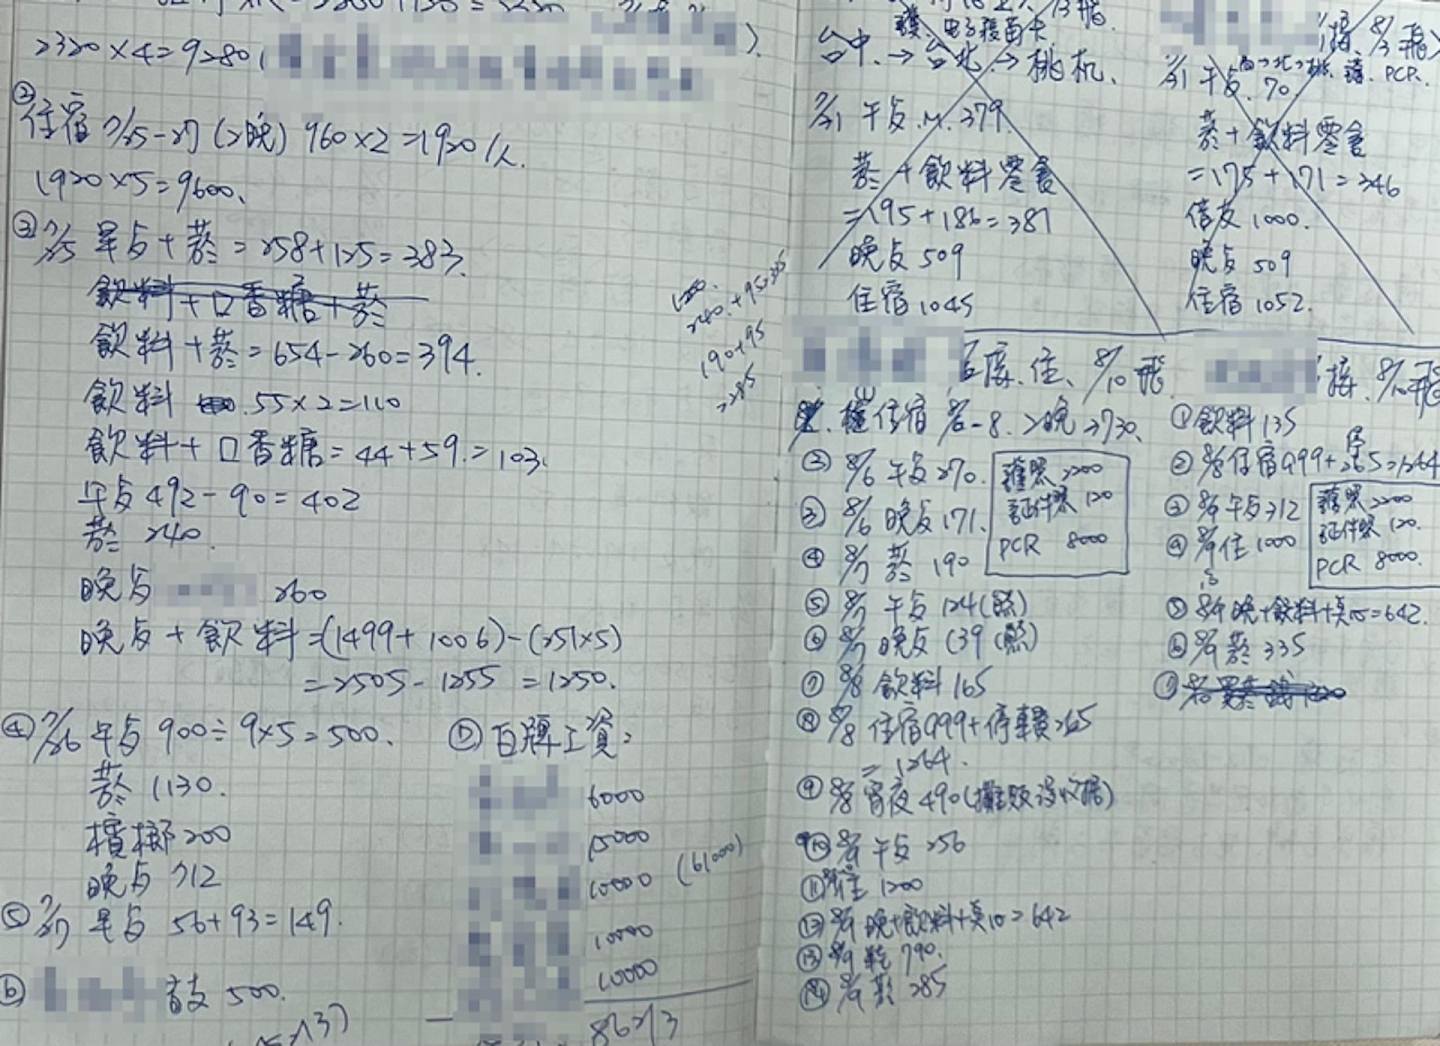 2320×4=9280(
).
②
住宿 7/25-27 (2晚) 960×2=1920/人
1920×5=9600、
③ 7/25 早点+菸=258+125=383.
飲料+口香糖+菸
飲料+菸=654-260=394.
飲料 55×2=110
飲料+口香糖=44+59=103.
午点 492-90=402
菸 240.
晚点 260
晚点+飲料=(1499+1006)-(251×5)
=2505-1255=1250.
1200.
240.+95=335
190+95
=285
④ 7/26 午点 900÷9×5=500.
菸 1130.
檳榔 200
晚点 312
⑤ 7/27 早点 56+93=149.
⑥ 500.
⑦ 白牌工資:
6000
15000
10000 (61000)
10000
10000
86213
護 电子疫苗卡
台中→台北→桃机.
7/31 午点.M.379
菸+飲料零食
=195+186=381
晚点 509
住宿 1045
接、8/3飛
7/31 午点. 70. PCR.
菸+飲料零食
=175+171=346
借支 1000.
晚点 509
住宿 1052.
接.住、8/10飛
住宿 8/6-8. 2晚 3730.
② 8/6 午点 270.
③ 8/6 晚点 171.
④ 8/7 菸 190
護照 2200
証件照 120
PCR 8000
⑤ 8/7 午点 124(熙)
⑥ 8/7 晚点 139(熙)
⑦ 8/8 飲料 165
⑧ 8/8 住宿 999+停車費265
=1264.
⑨ 8/8 宵夜 490(攤販沒收據)
⑩ 8/9 午点 256
⑪ 8/9住 1200
⑫ 8/9 晚+飲料+臭10=642
⑬ 8/9 鞋 790.
⑭ 8/9 菸 285
接.8/10飛
① 飲料 135
② 8/8住宿 999+停265=1264
③ 8/9午点 312
④ 8/9住 1000
護照 2200
証件照 120.
PCR 8000.
⑤ 8/9 晚+飲料+臭10=642.
⑥ 8/9菸 335
⑦